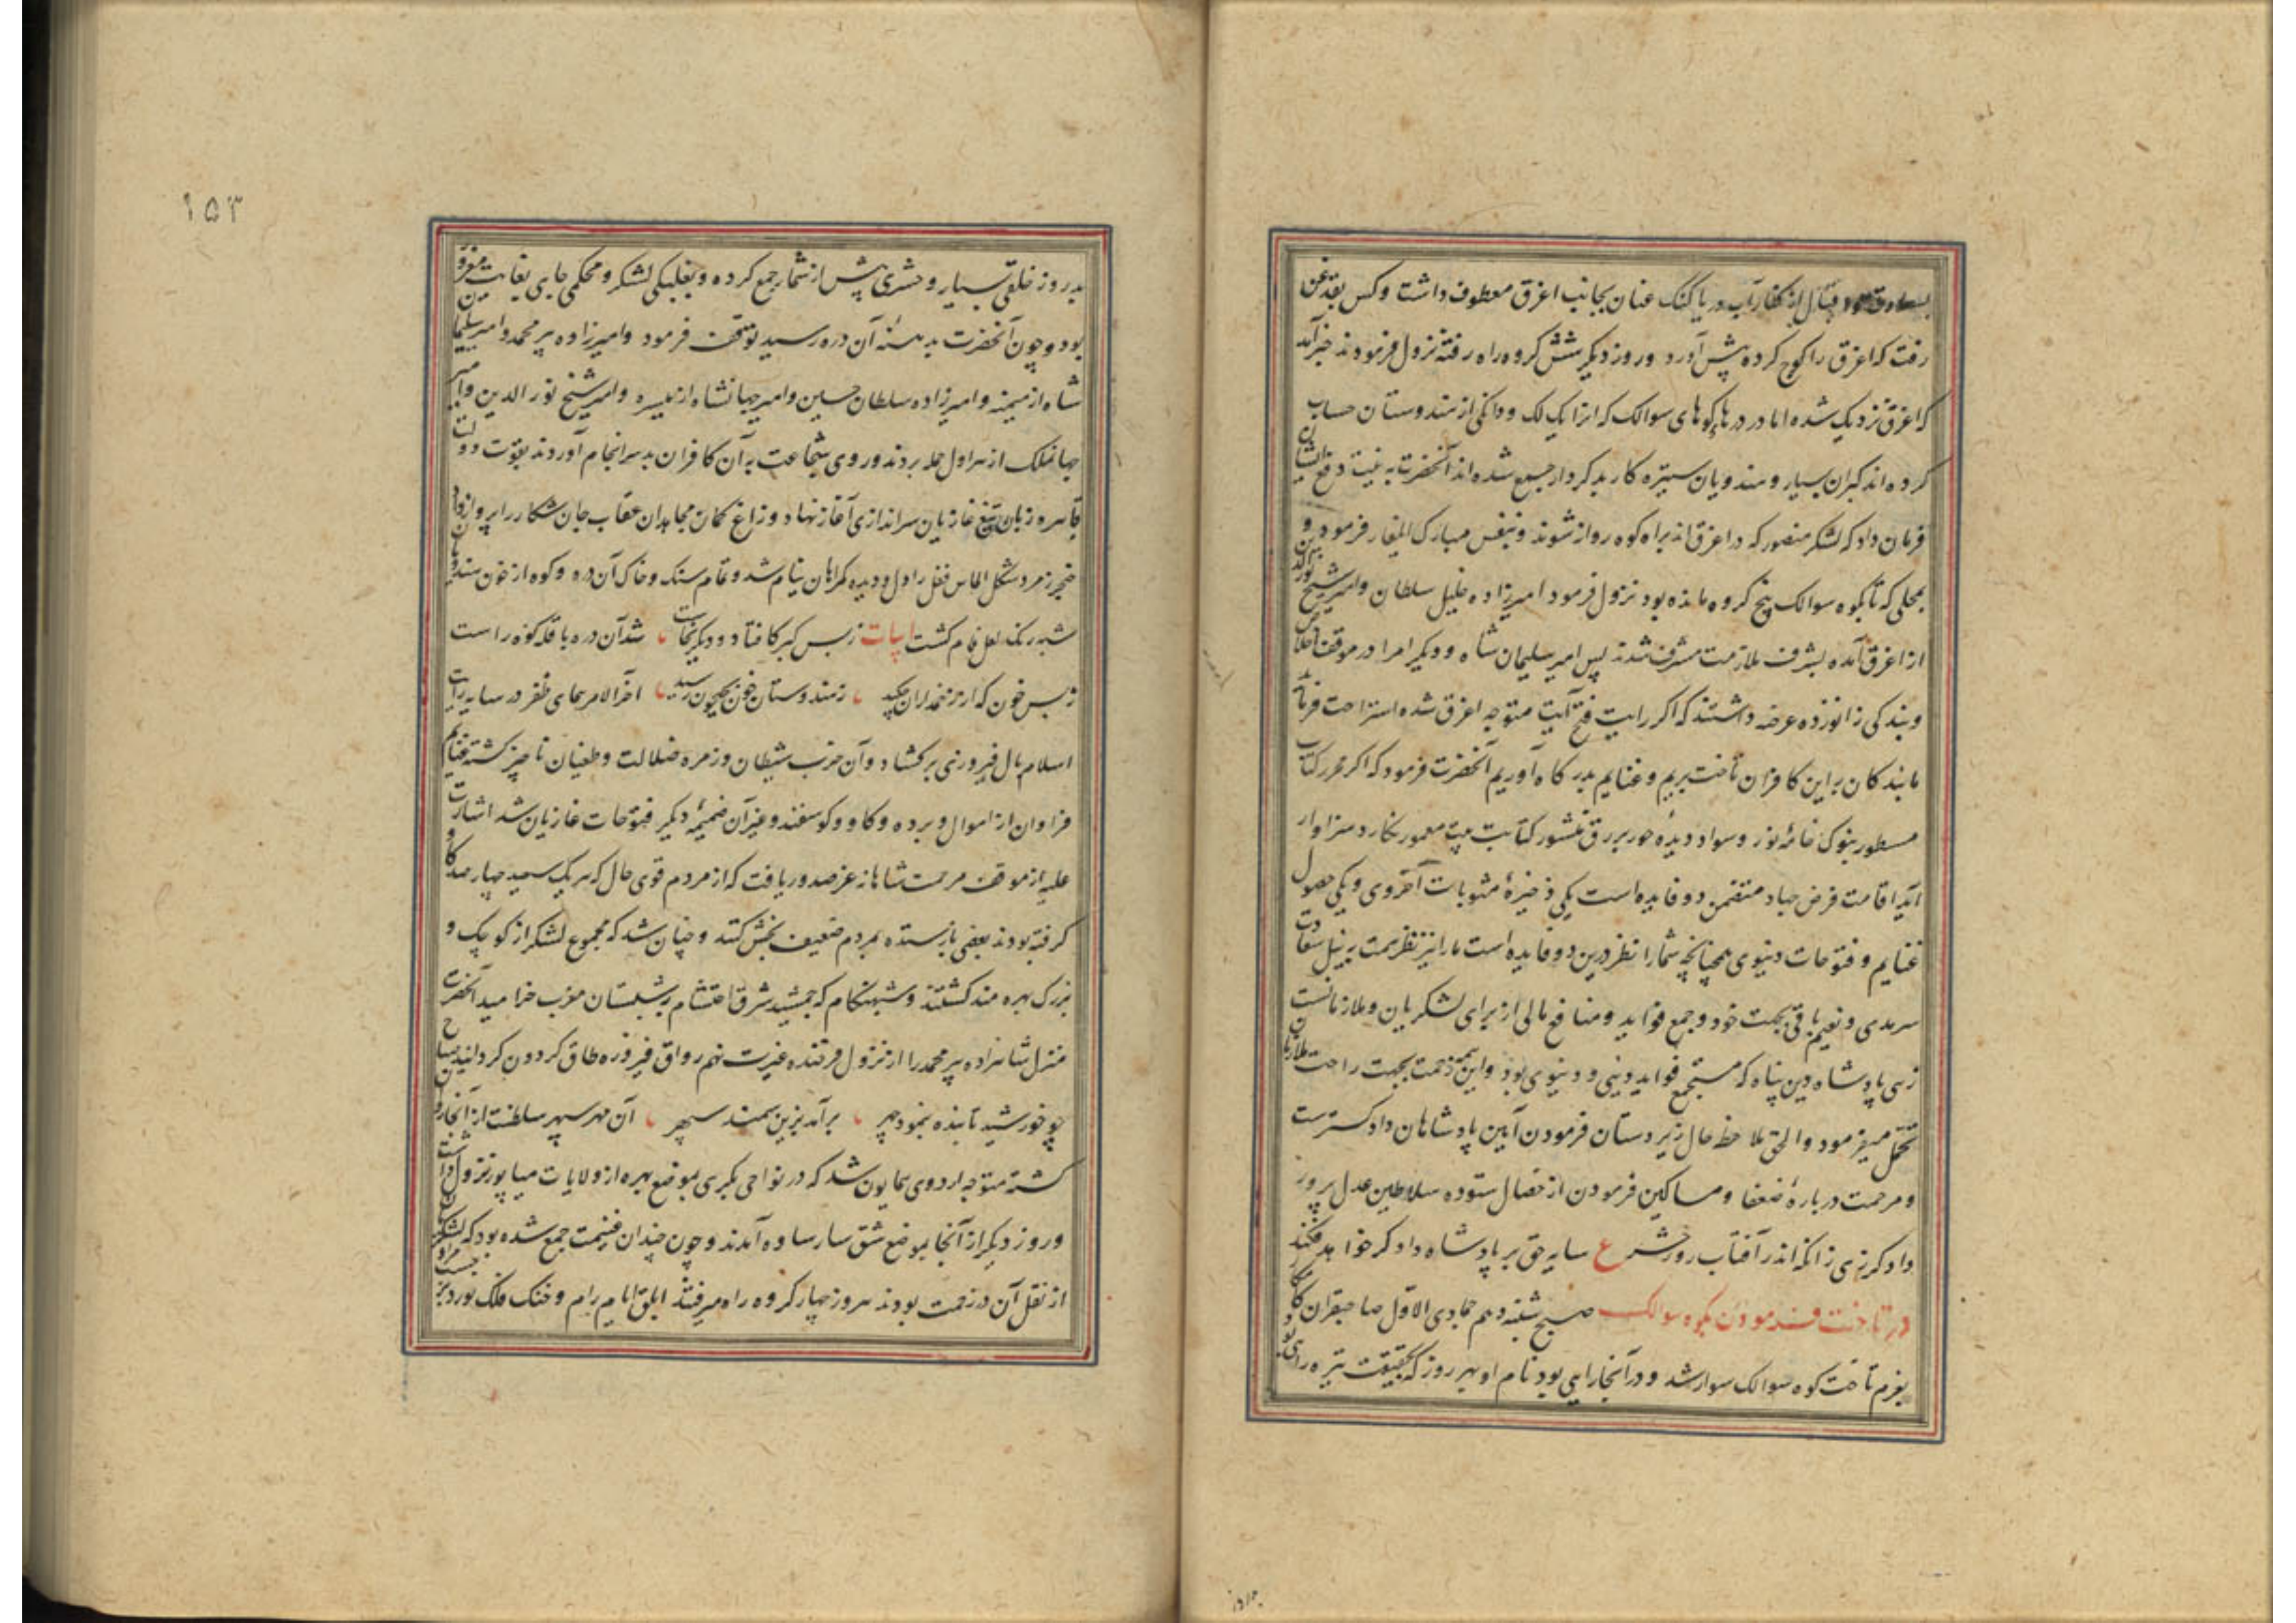 قتال از کنار آب دریا کنک عنان بجانب اغرق معطوف داشت و کس بقدغن
رفت که اغرق را کوچ کرده پیش آورد و روز دیگر شش کروه راه رفته نزول فرمودند خبر آمد
که اغرق نزدیک شده اما در درهاء کوهای سوالک که انرا یک لک و دانکی از هندوستان حساب
کرده اند کبران بسیار و هندویان ستیزه کار بدکردار جمع شده اند آنحضرت به نیت دفع ایشان
فرمان داد که لشکر منصور که در اغرق اند براه کوه روانه شوند و بنفس مبارک ایلغار فرمود و
بمحلی که تا بکوه سوالک پنج کروه مانده بود نزول فرمود امیرزاده خلیل سلطان و امیر شیخ نورالدین
از اغرق آمده بشرف ملازمت مشرف شدند پس امیر سلیمان شاه و دیگر امرا در موقف اخلاص
و بندکی زانو زده عرضه داشتند که اکر رایت فتح آیت متوجه اغرق شده استراحت فرماید
ما بندکان براین کافران تاخت بریم و غنایم بدرکاه آوریم آنحضرت فرمود که اکر محرر کتاب
مسطور بنوک خامهٔ نور و سواد دیدهٔ حور بر رق منشور کتابت بیت معمور نکارد سزاوار
آید اقامت فرض جهاد متضمن دو فایده است یکی ذخیرهٔ مثوبات آخروی و یکی حصول
غنایم و فتوحات دنیوی همچنانچه شما را نظر درین دو فایده است ما را نیز نظر همت بر نیل سعادت
سرمدی و نعیم باقی بجهت خود و جمع فواید و منافع مالی از برای لشکریان و ملازمانست
زهی پادشاه دین پناه که مستجمع فواید دینی و دنیوی بود و این همه زحمت بجهت راحت ملازمان
تحمل میفرمود و الحق ملاحظه حال زیردستان فرمودن آیین پادشاهان دادکسترست
و مرحمت در بارهٔ ضعفا و مساکین فرمودن از خصال ستوده سلاطین عدل پرور
دادکر زی زانکه اندر آفتاب روز حشر ع سایه حق بر پادشاه دادکر خواهد فکند
در تاخت فرمودن بکوه سوالک صبح شنبه دهم جمادی الاول صاحبقران کامکار
بعزم تاخت کوه سوالک سوار شد و در آنجا رایی بود نام او بهروز که بحقیقت تیره رای و
۱۵۳
بدروز خلقی بسیار و حشری بیش از شمار جمع کرده و بغلبکی لشکر و محکمی جای بغایت مغرور
بود و چون آنحضرت بدهنهٔ آن دره رسید توقف فرمود و امیرزاده پیر محمد و امیر سلیمان
شاه از میمنه و امیرزاده سلطان حسین و امیر جهانشاه از میسره و امیر شیخ نورالدین و امیر
جهانملک از هراول حمله بردند و روی شجاعت به آن کافران بدسرانجام آوردند بقوت دولت
قاهره زبان تیغ غازیان سراندازی آغاز نهاد و زاغ کمان مجاهدان عقاب جان شکار را پرواز داد
خنجر زمرد شکل الماس فعل را دل و دیده کمراهان نیام شد و تمام سنک و خاک آن دره و کوه از خون هندوان
شبه رنک لعل فام کشت ابیات ز بس کبر کافتاد و دیکر نخاست شد آن دره با قله کوه راست
ز بس خون که از زخمداران چکید ز هندوستان خون بجیحون رسید آخر الامر همای ظفر در سایه رایت
اسلام بال فیروزی برکشاد و آن حزب شیطان و زمره ضلالت و طغیان ناچیز کشته غنایم
فراوان از اموال و برده و کاو و کوسفند و غیر آن ضمیمهٔ دیکر فتوحات غازیان شد اشارت
علیه از موقف مرحمت شاهانه عز صدور یافت که از مردم قوی حال که هر یک سیصد چهارصد کاو
کرفته بودند بعضی بازستده بمردم ضعیف بخش کنند و چنان شد که مجموع لشکر از کوچک و
بزرک بهره مند کشتند و شبهنکام که جمشید شرق احتشام بشبستان مغرب خرامید آنحضرت
منزل شاهزاده پیر محمد را از نزول فرخنده غیرت نهم رواق فیروزه طاق کردون کردانید صباح
چو خورشید تابنده بنمود چهر برآمد بزین سمند سپهر آن مهر سپهر سلطنت از آنجا روان
کشته متوجه اردوی همایون شد که در نواحی بکری بموضع بهره از ولایات میاپور نزول داشت
و روز دیکر از آنجا بموضع شق سارساوه آمدند و چون چندان غنیمت جمع شده بود که لشکریان
از نقل آن در زحمت بودند هر روز چهار کروه راه میرفتند ابلق ایام رام و خنک فلک بر حسب مراد